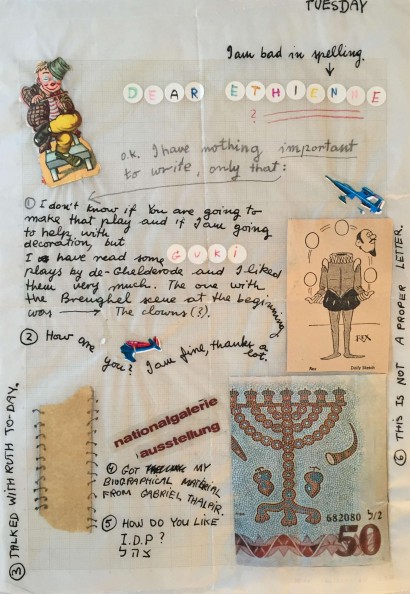 TUESDAY
I am bad in spelling.
DEAR ETHIENNE
?
O.K. I have nothing important
to write, only that:
① I don't know if You are going to
make that play and if I am going
to help with
decoration, but
GUKI
I have read some
plays by de-Ghelderode and I liked
them very much. The one with
the Breughel scene at the beginning
was → The clowns (?).
② How are you? I am fine, thanks a lot.
REX
Rex Daily Sketch
nationalgalerie
ausstellung
④ GOT MY
BIOGRAPHICAL MATERIAL
FROM GABRIEL THALAR.
⑤ HOW DO YOU LIKE
I.D.P?
צהל
682080 2/ל
50
③ TALKED WITH RUTH TO-DAY.
⑥ THIS IS NOT A PROPER LETTER.